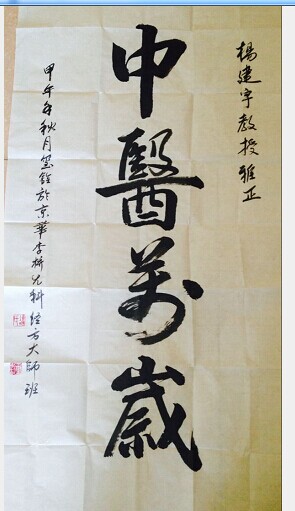 楊建宇教授雅正
中醫萬歲
甲午年秋月 於京華李 兒科經方大師班